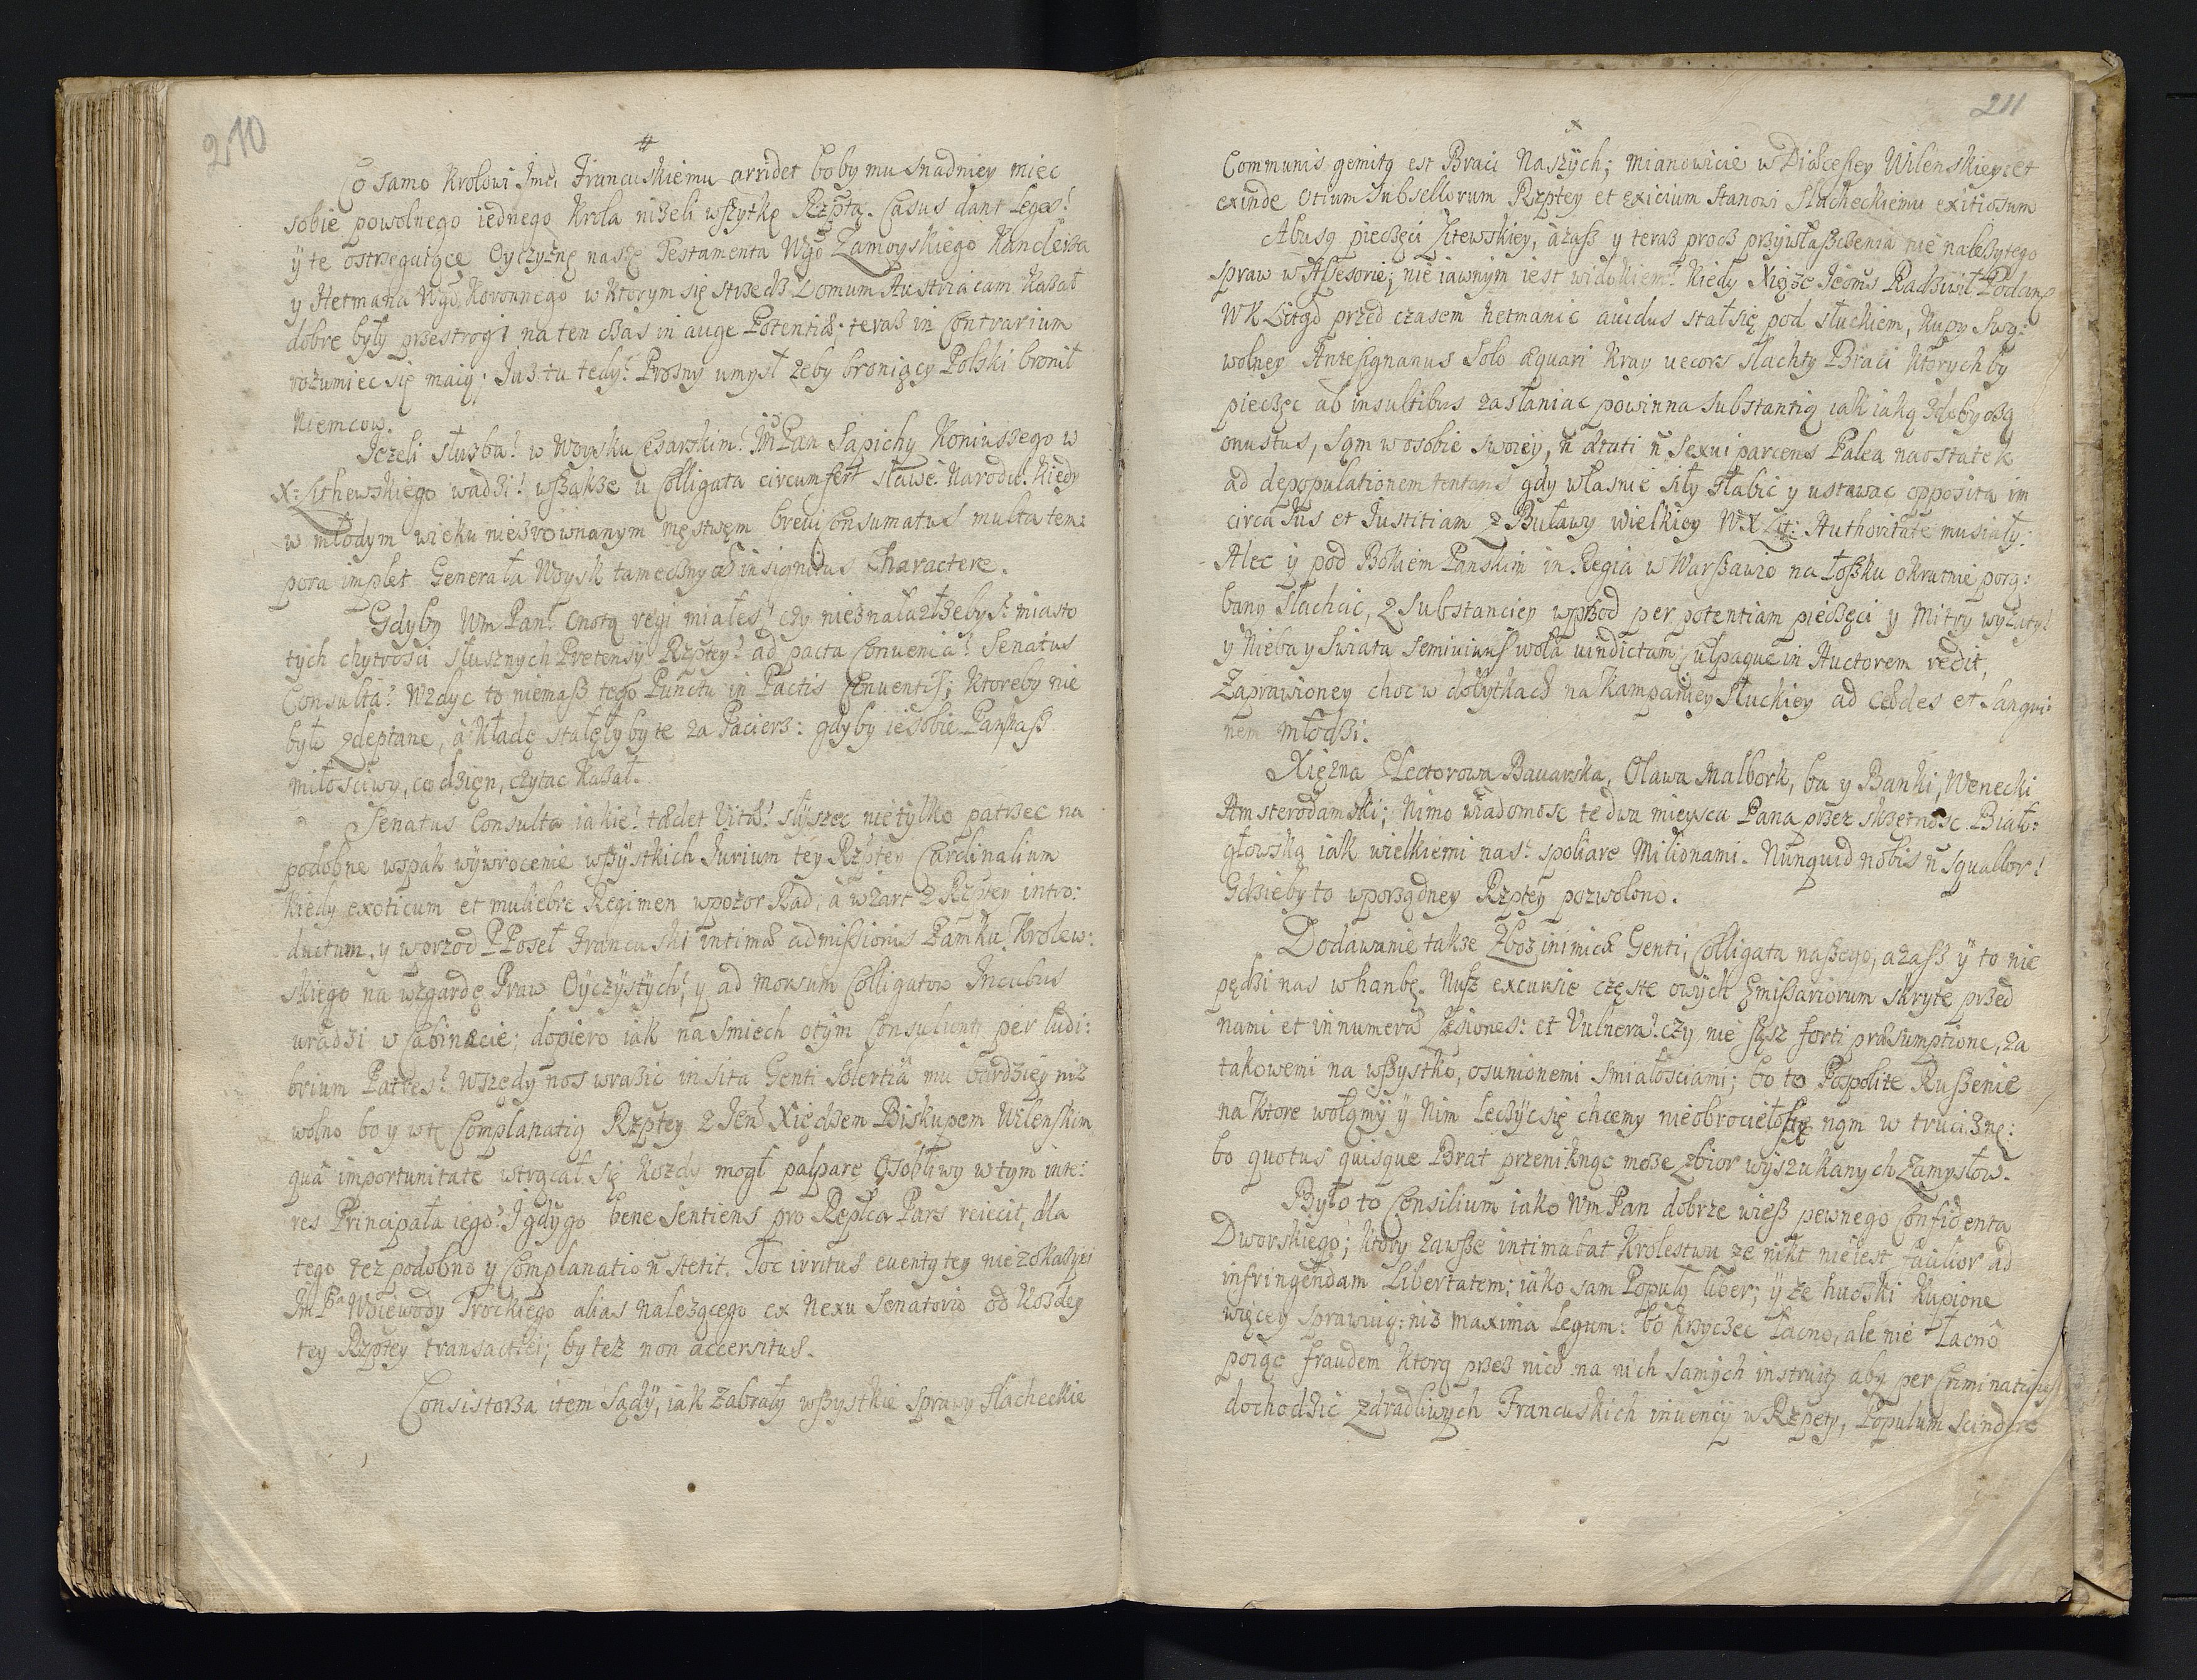 210
#
Co samo Krolowi Jmći Francuskiemu arridet boby mu snadniey miec
sobie powolnego iednego Krola niżeli wszytkę Rzptą. Casus dant Leges!
ÿ te ostrzegaiące Oyczyznę naszę Testamenta Wgo Zamoyskiego Kanclerza
y Hetmana Wgo Koronnego w ktorym się strzedz Domum Austriacam kazał
dobre były przestrogi na ten czas in auge Potentiæ; teraz in Contrarium
rozumiec się maią; Juz tu tedy? Prozny umysł zeby broniący Polski bronił
Niemcow.
Jezeli słuzba! w Woysku Cesarskim! Jm Pan Sapiehy Koniuszego w
X: Lithewskiego wadzi! wszakze u Colligata circumfert sławę Narodu. Kiedy
w młodym wieku niezrownanym męstwem brevi Consumatus multa tem:
pora implet Generała Woysk tamecznych insignitus Charactere.
Gdyby Wm Pan! Cnotą regi miałes! czy nieznalazłżebyś miasto
tych chytrosci słusznych Pretensÿi Rzptey? ad pacta Conventa? Senatus
Consulta? Wzdyc to niemasz tego Punctu in Pactis Conventis; ktoreby nie
było zdeptane, a kładę stałęłyby te za Pacierz: gdyby ie sobie Pan nasz
miłosciwy, co dzięn, czytac kazał.
Senatus Consulta iakie! tædet Vitæ! słÿszec nietylko patrzec na
podobne wspak wÿwrocenie wszÿstkich Jurium tey Rzptey Cardinalium
kiedy exoticum et muliebre Regimen wpozor Rad, a wżart z Rzptey intro:
ductum, y wprzod P Poseł Francuski intimæ admissionis Zamku Krolew:
skiego na wzgardę Praw Oÿczÿstÿch, y ad morsum Colligatow Incubus
uradzi w Cabinecie; dopiero iak na smiech otÿm Consulunt per ludi:
brium Patres? Wszędy nos wrazic insita Genti solertia mu bardziey niz
wolno bo y wtę Complanatią Rzptey z Jem Xiędzem Biskupem Wilenskim
qua importunitate wtrącał się kozdy mogł palpare Osobliwy w tym inte:
res Principała iego? Igdÿgo bene Sentiens pro Replca Pars reiecit, dla
tego też podobno y Complanatio n stetit. Toc irritus eventy tey niezokazyi
Jm Pa Woiewody Trockiego alias nalezącego ex Nexu Senatorio od kozdey
tey Rzptey transactiei; by też non accersitus.
Consistorza item Sądÿ, iak zabrały wszÿstkie sprawy slacheckie
211
x
Communis gemitq est Braci Naszÿch; mianowicie w Diæcesiey Wilenskiey: et
exinde otium Subselliorum Rzptey et exicium stanowi Slacheckiemu exitiosum
Abusq pieczęci Litewskiey, azasz y teraz procz przywłaszczenia nie nalezytego
spraw w Assesorie; nie iawnÿm iest widokiem? kiedy Xiąże Jeoms Radziwił Podany
WX Littgo przed czasem hetmanic avidus stał się pod słuckiem, kupy swy:
wolney Antesignanus Solo æquari kray vecors slachty Braci ktorych by
pieczęc ab insultibus zasłaniac powinna substantią iak iaką zdobyczą
onustus, sąm w osobie swoiey, n ætati n Sexui parcens Palea naostatek
ad depopulationem tentans gdy własnie siły słabic y ustawac opposita im
circa Jus et Justitiam z Buławy wielkiey WX Lit: Authoritate musiały.
Alec y pod Bokiem Panskim in Regia w Warszawie na łoszku okrutnie porą:
bany slachcic, z substanciey wprzod per potentiam pieczęci y Mitry wyzuty!
y Nieba y Swiata Semivivus woła vindictam; culpaque in Auctorem redit,
Zaprawioney choc w dobytkach na Kampaniey Słuckiey ad Cædes et Sangui:
nem młodzi.
Xiężna Electorowa Bavarska, Oława Malbork, ba y Banki, Wenecki
Amsterodamski; Nimo wiadomosc te dwa mieysca Pana przez skrzętnosc Biał:
głowską iak wielkiemi nas? spoliare Milionami. Nunquid nobis n squallor!
Gdzieby to wporządney Rzptey pozwolono.
Dodawanie takze Zboz inimicæ Genti, Colligata naszego, azasz ÿ to nie
pędzi nas w hanbę. Nusz excursie częste owÿch Emissariorum skryte przed
nami et innumeræ Lesiones: et Vulnera! czy nie sąsz forti præsumptione, za
takowemi na wszystko, osunionemi smiałosciami; bo to Pospolite Ruszenie
na ktore wołąmÿ ÿ Nim Leczÿc się chcemy nieobrociełosię nąm w truciznę:
bo quotus quisque Brat przeniknąc moze zbior wÿszukanych Zamysłow.
Było to Consilium iako Wm Pan dobrze wiesz pewnego Confidenta
Dworskiego; ktorÿ zawsze intimabat krolestwu ze nikt nieiest facilior ad
infringendam Libertatem; iako sam Populq liber; ÿ ze huczki kupione
więcey sprawuią: niz maxima Legum: bo krzyczec łacno, ale nie łacno
poiąc fraudem ktorą przez nich na nich samÿch instruitq aby per Criminationes
dochodzic zdradliwych Francuskich invencÿ w Rzpety, Populum Scindere